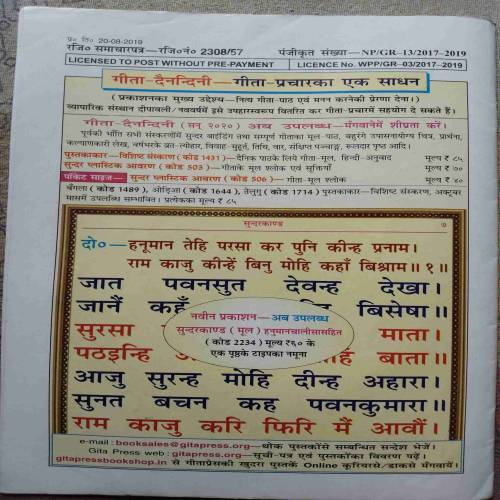 प्र० ति० 20-08-2019
रजि० समाचारपत्र—रजि०नं० 2308/57 पंजीकृत संख्या—NP/GR-13/2017-2019
LICENSED TO POST WITHOUT PRE-PAYMENT LICENCE No. WPP/GR-03/2017-2019
गीता-दैनन्दिनी—गीता-प्रचारका एक साधन
(प्रकाशनका मुख्य उद्देश्य—नित्य गीता-पाठ एवं मनन करनेकी प्रेरणा देना।)
व्यापारिक संस्थान दीपावली/नववर्षमें इसे उपहारस्वरूप वितरित कर गीता-प्रचारमें सहयोग दे सकते हैं।
गीता-दैनन्दिनी (सन् २०२०) अब उपलब्ध—मँगवानेमें शीघ्रता करें।
पूर्वकी भाँति सभी संस्करणोंमें सुन्दर बाइंडिंग तथा सम्पूर्ण गीताका मूल-पाठ, बहुरंगे उपासनायोग्य चित्र, प्रार्थना,
कल्याणकारी लेख, वर्षभरके व्रत-त्योहार, विवाह-मुहूर्त, तिथि, वार, संक्षिप्त पञ्चाङ्ग, रूलदार पृष्ठ आदि।
पुस्तकाकार—विशिष्ट संस्करण (कोड 1431)—दैनिक पाठके लिये गीता-मूल, हिन्दी-अनुवाद मूल्य ₹ ८५
सुन्दर प्लास्टिक आवरण (कोड 503)—गीताके मूल श्लोक एवं सूक्तियाँ मूल्य ₹ ७०
पॉकेट साइज— सुन्दर प्लास्टिक आवरण (कोड 506)— गीता-मूल श्लोक मूल्य ₹ ४०
बँगला (कोड 1489), ओड़िआ (कोड 1644), तेलुगु (कोड 1714) पुस्तकाकार—विशिष्ट संस्करण, अक्टूबर
मासमें उपलब्ध सम्भावित। प्रत्येकका मूल्य ₹ ८५
सुन्दरकाण्ड ७
दो०—हनूमान तेहि परसा कर पुनि कीन्ह प्रनाम।
राम काजु कीन्हें बिनु मोहि कहाँ बिश्राम॥१॥
जात पवनसुत देवन्ह देखा।
जानैं कहुँ बिसेषा॥
सुरसा माता।
पठइन्हि बाता॥
नवीन प्रकाशन—अब उपलब्ध
सुन्दरकाण्ड (मूल) हनुमानचालीसासहित
(कोड 2234) मूल्य ₹६० के
एक पृष्ठके टाइपका नमूना
आजु सुरन्ह मोहि दीन्ह अहारा।
सुनत बचन कह पवनकुमारा॥
राम काजु करि फिरि मैं आवौं।
e-mail : booksales@gitapress.org—थोक पुस्तकोंसे सम्बन्धित सन्देश भेजें।
Gita Press web : gitapress.org—सूची-पत्र एवं पुस्तकोंका विवरण पढ़ें।
gitapressbookshop.in से गीताप्रेसकी खुदरा पुस्तकें Online कूरियरसे/डाकसे मँगवायें।